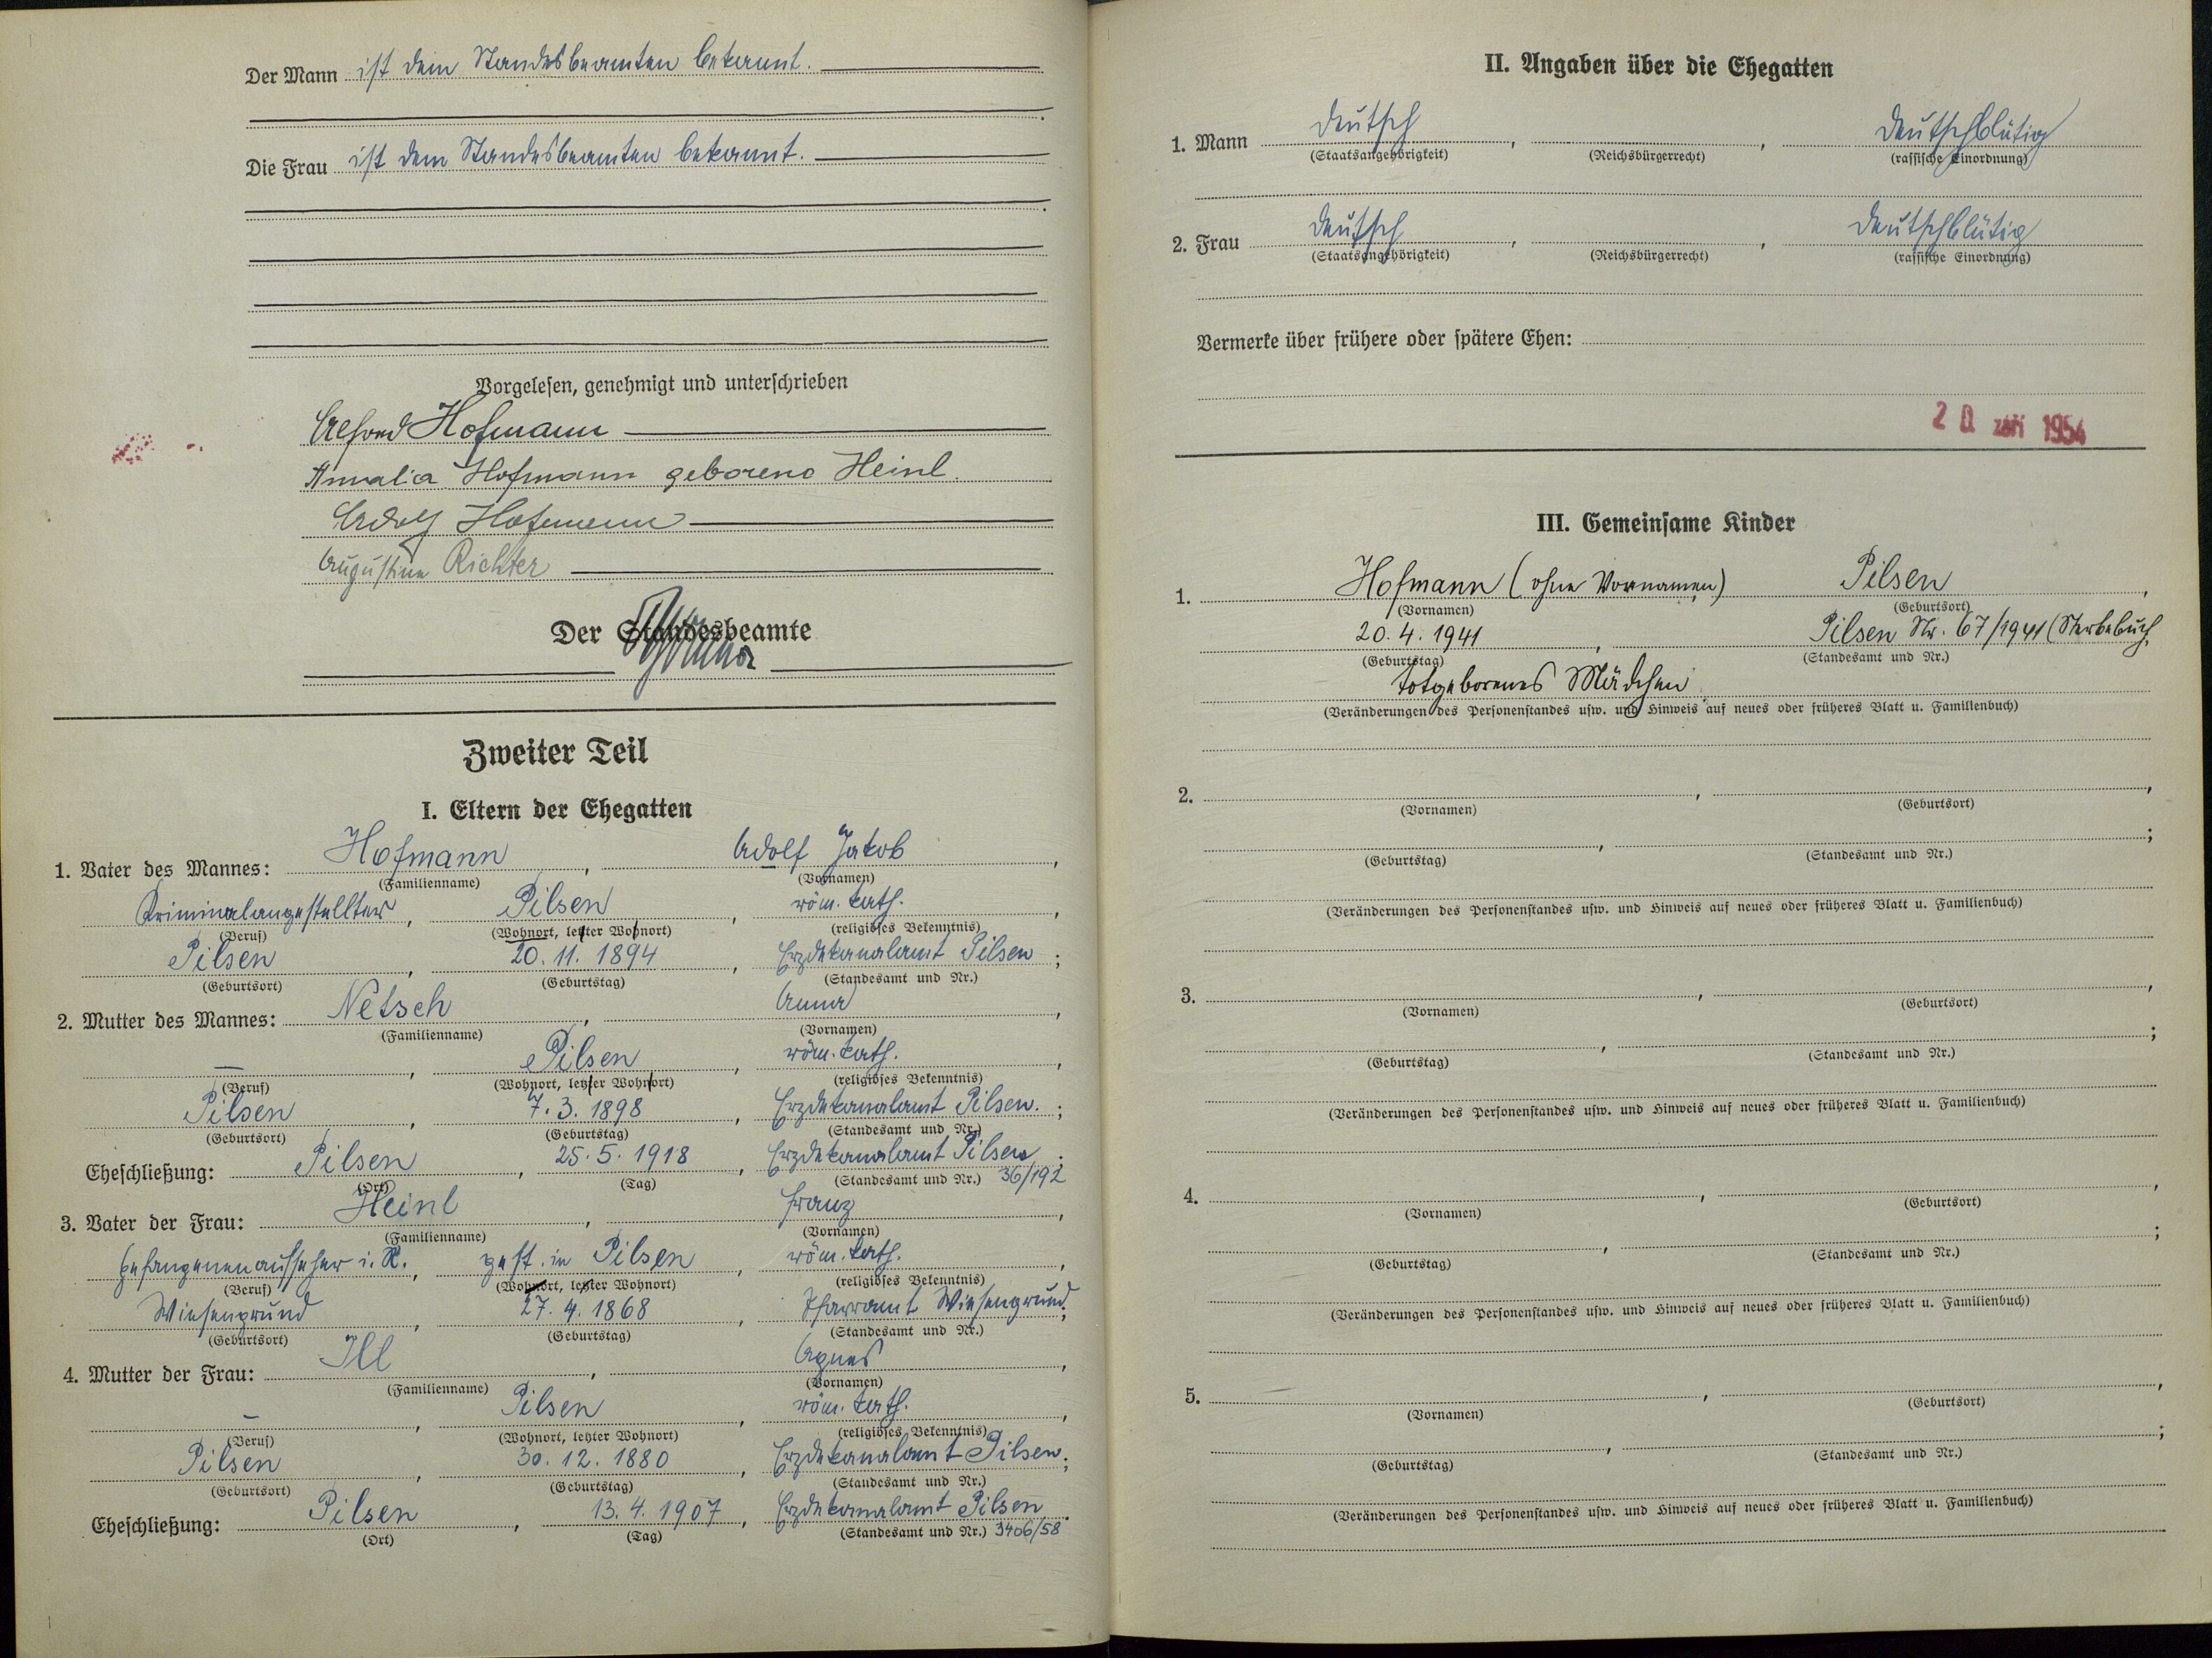 Der Mann ist dem Standesbeamten bekannt.
Die Frau ist dem Standesbeamten bekannt.
Vorgelesen, genehmigt und unterschrieben
Alfred Hofmann
Amalia Hofmann geborene Heinl.
Adolf Hofmann
Augustine Richter
Der Standesbeamte
Zweiter Teil
I. Eltern der Ehegatten
1. Vater des Mannes: Hofmann, Adolf Jakob,
(Familienname) (Vornamen)
Kriminalangestellter, Pilsen, röm. kath.,
(Beruf) (Wohnort, letzter Wohnort) (religiöses Bekenntnis)
Pilsen, 20. 11. 1894, Erzdekanalamt Pilsen;
(Geburtsort) (Geburtstag) (Standesamt und Nr.)
2. Mutter des Mannes: Netsch, Anna,
(Familienname) (Vornamen)
—, Pilsen, röm. kath.,
(Beruf) (Wohnort, letzter Wohnort) (religiöses Bekenntnis)
Pilsen, 7. 3. 1898, Erzdekanalamt Pilsen.;
(Geburtsort) (Geburtstag) (Standesamt und Nr.)
Eheschließung: Pilsen, 25. 5. 1918, Erzdekanalamt Pilsen;
(Ort) (Tag) (Standesamt und Nr.) 36/192
3. Vater der Frau: Heinl, Franz,
(Familienname) (Vornamen)
Gefangenenaufseher i. R., gest. in Pilsen, röm. kath.,
(Beruf) (Wohnort, letzter Wohnort) (religiöses Bekenntnis)
Wiesengrund, 27. 4. 1868, Pfarramt Wiesengrund;
(Geburtsort) (Geburtstag) (Standesamt und Nr.)
4. Mutter der Frau: Ill, Agnes,
(Familienname) (Vornamen)
—, Pilsen, röm. kath.,
(Beruf) (Wohnort, letzter Wohnort) (religiöses Bekenntnis)
Pilsen, 30. 12. 1880, Erzdekanalamt Pilsen;
(Geburtsort) (Geburtstag) (Standesamt und Nr.)
Eheschließung: Pilsen, 13. 4. 1907, Erzdekanalamt Pilsen.
(Ort) (Tag) (Standesamt und Nr.) 3406/58
II. Angaben über die Ehegatten
1. Mann deutsch, , deutschblütig
(Staatsangehörigkeit) (Reichsbürgerrecht) (rassische Einordnung)
2. Frau deutsch, , deutschblütig
(Staatsangehörigkeit) (Reichsbürgerrecht) (rassische Einordnung)
Vermerke über frühere oder spätere Ehen:
20 září 1954
III. Gemeinsame Kinder
1. Hofmann (ohne Vornamen) Pilsen,
(Vornamen) (Geburtsort)
20. 4. 1941, Pilsen Nr. 67/1941 (Sterbebuch
(Geburtstag) (Standesamt und Nr.)
totgeborenes Mädchen
(Veränderungen des Personenstandes usw. und Hinweis auf neues oder früheres Blatt u. Familienbuch)
2. , ,
(Vornamen) (Geburtsort)
, ;
(Geburtstag) (Standesamt und Nr.)
(Veränderungen des Personenstandes usw. und Hinweis auf neues oder früheres Blatt u. Familienbuch)
3. , ,
(Vornamen) (Geburtsort)
, ;
(Geburtstag) (Standesamt und Nr.)
(Veränderungen des Personenstandes usw. und Hinweis auf neues oder früheres Blatt u. Familienbuch)
4. , ,
(Vornamen) (Geburtsort)
, ;
(Geburtstag) (Standesamt und Nr.)
(Veränderungen des Personenstandes usw. und Hinweis auf neues oder früheres Blatt u. Familienbuch)
5. , ,
(Vornamen) (Geburtsort)
, ;
(Geburtstag) (Standesamt und Nr.)
(Veränderungen des Personenstandes usw. und Hinweis auf neues oder früheres Blatt u. Familienbuch)